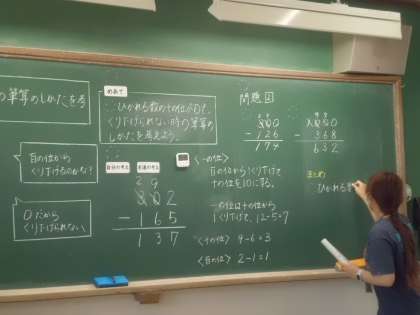 の筆算のしかたを考
めあて
ひかれる数の十の位が0で、
くり下げられない時の筆算の
しかたを考えよう。
百の位から
くり下げるのかな?
0だから
くり下げられない
自分の考え
友達の考え
2 9
302
-165
137
〈一の位〉
百の位から1くり下げて
十の位を10にする。
一の位は十の位から
1くり下げて、12-5=7
〈十の位〉 9-6=3
〈百の位〉 2-1=1
問題図
-126
174
-368
632
まとめ
ひかれる